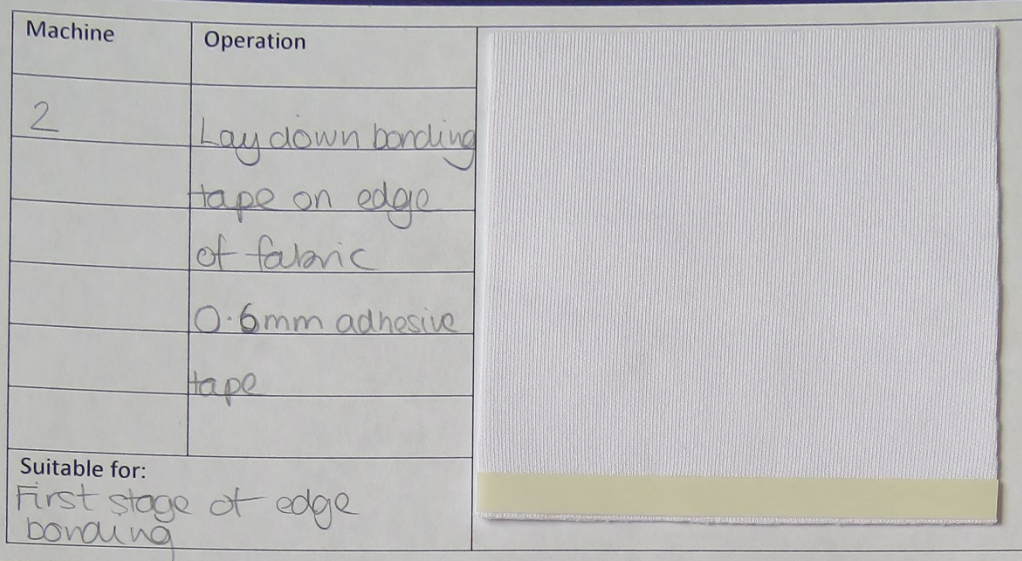 Machine
Operation
2
Lay down bonding
tape on edge
of fabric
0.6mm adhesive
tape
Suitable for:
First stage of edge
bonding